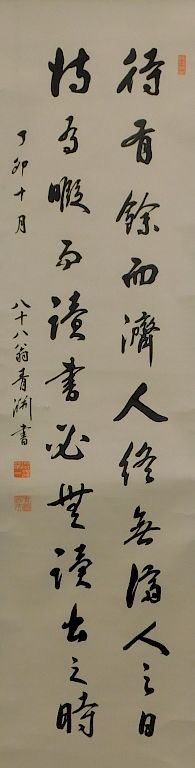 待有餘而濟人終無濟人之日
待有暇而讀書必無讀書之時
丁卯十月
八十八翁青淵書